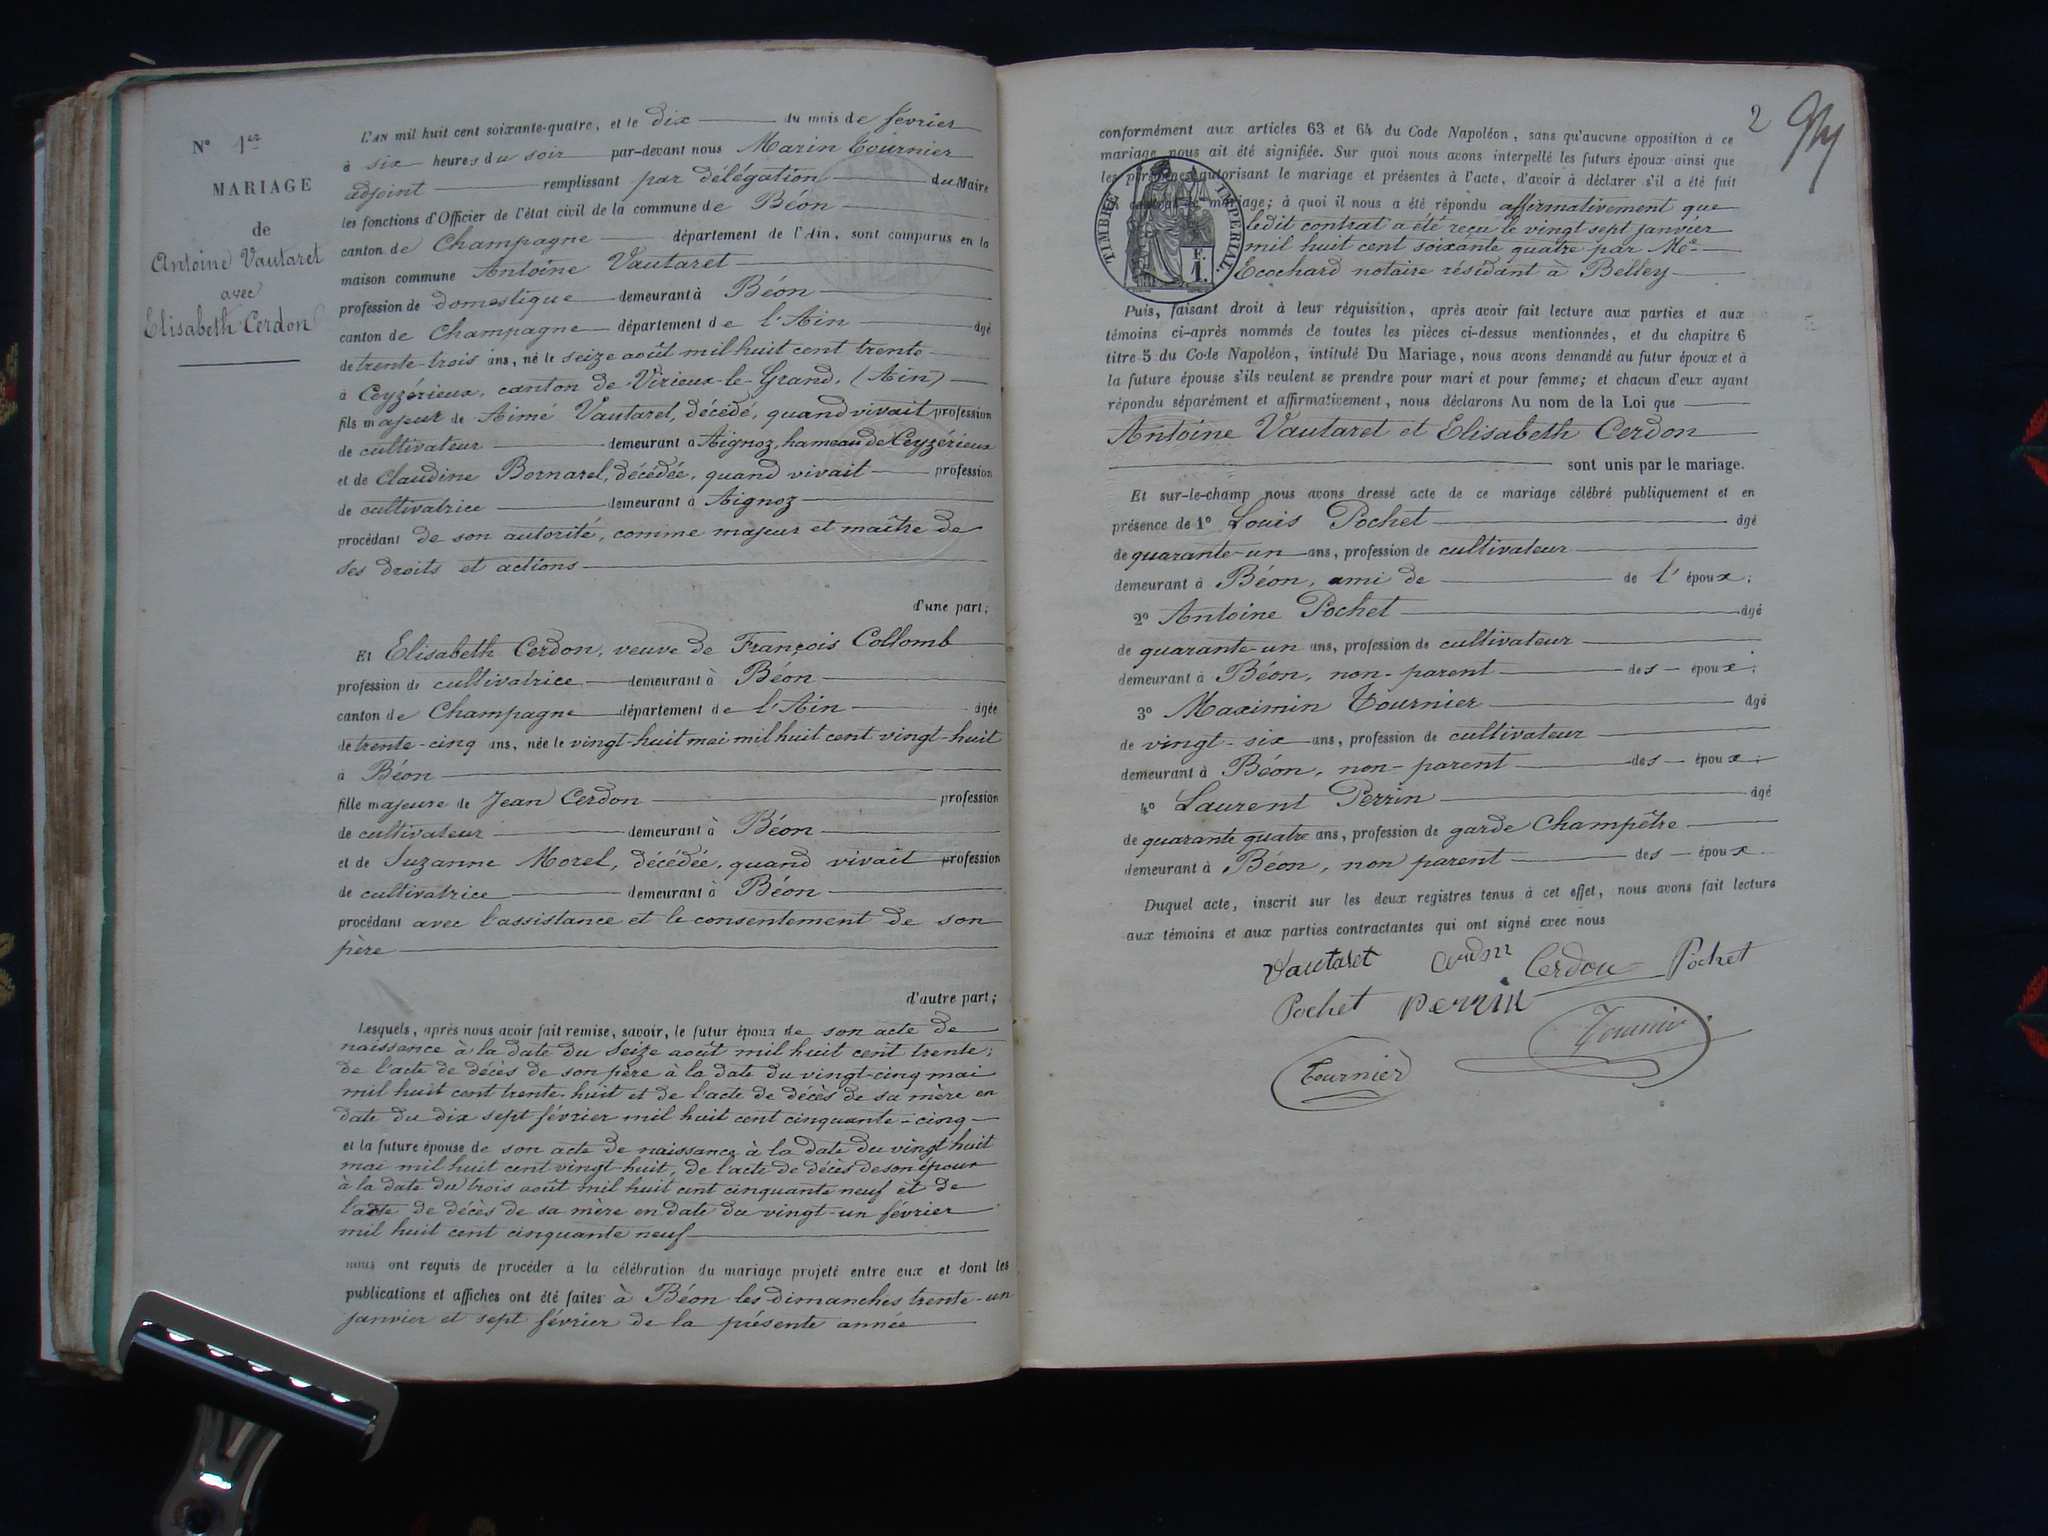 N° 1er
MARIAGE
de
Antoine Vautaret
avec
Elisabeth Cerdon
L'AN mil huit cent soixante-quatre, et le dix du mois de février
à six heures du soir par-devant nous Marin Tournier
adjoint remplissant par délégation du Maire
les fonctions d'Officier de l'état civil de la commune de Béon
canton de Champagne département de l'Ain, sont comparus en la
maison commune Antoine Vautaret
profession de domestique demeurant à Béon
canton de Champagne département de l'Ain âgé
de trente-trois ans, né le seize août mil huit cent trente
à Ceyzérieux, canton de Virieux-le-Grand, (Ain)
fils majeur de Aimé Vautaret, décédé, quand vivait profession
de cultivateur demeurant à Aignoz, hameau de Ceyzérieux
et de Claudine Bornarel, décédée, quand vivait profession
de cultivatrice demeurant à Aignoz
procédant de son autorité, comme majeur et maître de
ses droits et actions
d'une part;
Et Elisabeth Cerdon, veuve de François Collomb
profession de cultivatrice demeurant à Béon
canton de Champagne département de l'Ain âgée
de trente-cinq ans, née le vingt-huit mai mil huit cent vingt-huit
à Béon
fille majeure de Jean Cerdon profession
de cultivateur demeurant à Béon
et de Suzanne Morel, décédée, quand vivait profession
de cultivatrice demeurant à Béon
procédant avec l'assistance et le consentement de son
père
d'autre part;
Lesquels, après nous avoir fait remise, savoir, le futur époux de son acte de
naissance à la date du seize août mil huit cent trente;
de l'acte de décès de son père à la date du vingt-cinq mai
mil huit cent trente-huit et de l'acte de décès de sa mère en
date du dix sept février mil huit cent cinquante-cinq
et la future épouse de son acte de naissance à la date du vingt huit
mai mil huit cent vingt-huit, de l'acte de décès de son époux
à la date du trois août mil huit cent cinquante neuf et de
l'acte de décès de sa mère en date du vingt-un février
mil huit cent cinquante neuf
nous ont requis de procéder à la célébration du mariage projeté entre eux et dont les
publications et affiches ont été faites à Béon les dimanches trente-un
janvier et sept février de la présente année
2
conformément aux articles 63 et 64 du Code Napoléon, sans qu'aucune opposition à ce
mariage nous ait été signifiée. Sur quoi nous avons interpellé les futurs époux ainsi que
les personnes autorisant le mariage et présentes à l'acte, d'avoir à déclarer s'il a été fait
mariage; à quoi il nous a été répondu affirmativement que
ledit contrat a été reçu le vingt sept janvier
mil huit cent soixante quatre par Me
Ecochard notaire résidant à Belley
TIMBRE IMPERIAL.
F.
1.
Puis, faisant droit à leur réquisition, après avoir fait lecture aux parties et aux
témoins ci-après nommés de toutes les pièces ci-dessus mentionnées, et du chapitre 6
titre 5 du Code Napoléon, intitulé Du Mariage, nous avons demandé au futur époux et à
la future épouse s'ils veulent se prendre pour mari et pour femme; et chacun d'eux ayant
répondu séparément et affirmativement, nous déclarons Au nom de la Loi que
Antoine Vautaret et Elisabeth Cerdon
sont unis par le mariage.
Et sur-le-champ nous avons dressé acte de ce mariage célébré publiquement et en
présence de 1° Louis Pochet âgé
de quarante-un ans, profession de cultivateur
demeurant à Béon, ami de de l'époux;
2° Antoine Pochet âgé
de quarante-un ans, profession de cultivateur
demeurant à Béon, non-parent des époux;
3° Maximin Tournier âgé
de vingt-six ans, profession de cultivateur
demeurant à Béon, non-parent des époux;
4° Laurent Perrin âgé
de quarante quatre ans, profession de garde Champêtre
demeurant à Béon, non parent des époux.
Duquel acte, inscrit sur les deux registres tenus à cet effet, nous avons fait lecture
aux témoins et aux parties contractantes qui ont signé avec nous
Vautaret Cerdon Cerdon Pochet
Pochet Perrin
Tournier
Tournier